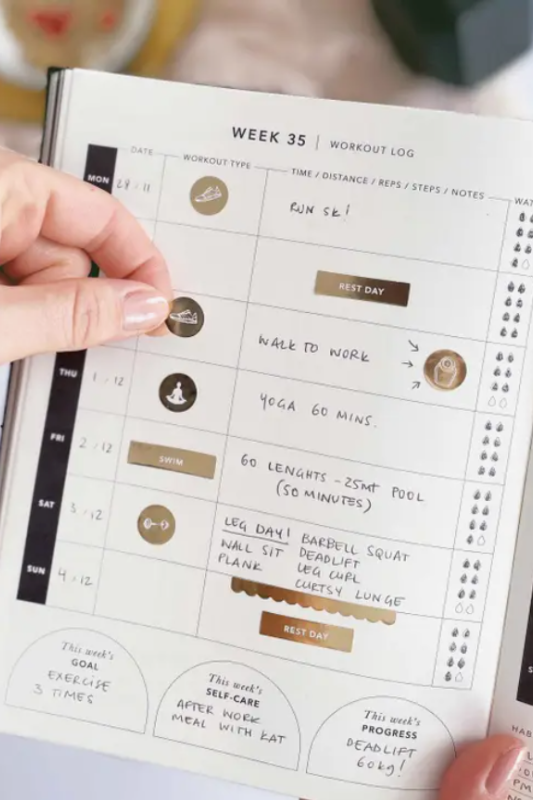 WEEK 35 | WORKOUT LOG
DATE
WORKOUT TYPE
TIME / DISTANCE / REPS / STEPS / NOTES
MON
RUN 5K!
REST DAY
WALK TO WORK
THU
1 / 12
YOGA 60 MINS.
FRI
2 / 12
SWIM
60 LENGHTS - 25MT POOL
(50 MINUTES)
SAT
3 / 12
LEG DAY! BARBELL SQUAT
WALL SIT DEADLIFT
PLANK LEG CURL
CURTSY LUNGE
SUN
4 / 12
REST DAY
This week's
GOAL
EXERCISE
3 TIMES
This week's
SELF-CARE
AFTER WORK
MEAL WITH KAT
This week's
PROGRESS
DEADLIFT
60kg!